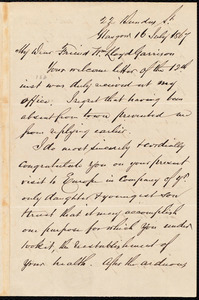 27 Dundas St.
Glasgow 16 July 1867
My Dear Friend Wm Lloyd Garrison
Your welcome letter of the 12th
inst was duly received at my
office. I regret that having been
absent from town prevented me
from replying earlier.
I do most sincerely & cordially
Congratulate You on your present
visit to Europe in Company of yr
only daughter & youngest son
& trust that it may accomplish
one purpose for which You under
took it, the reestablishment of
your health. After the arduous